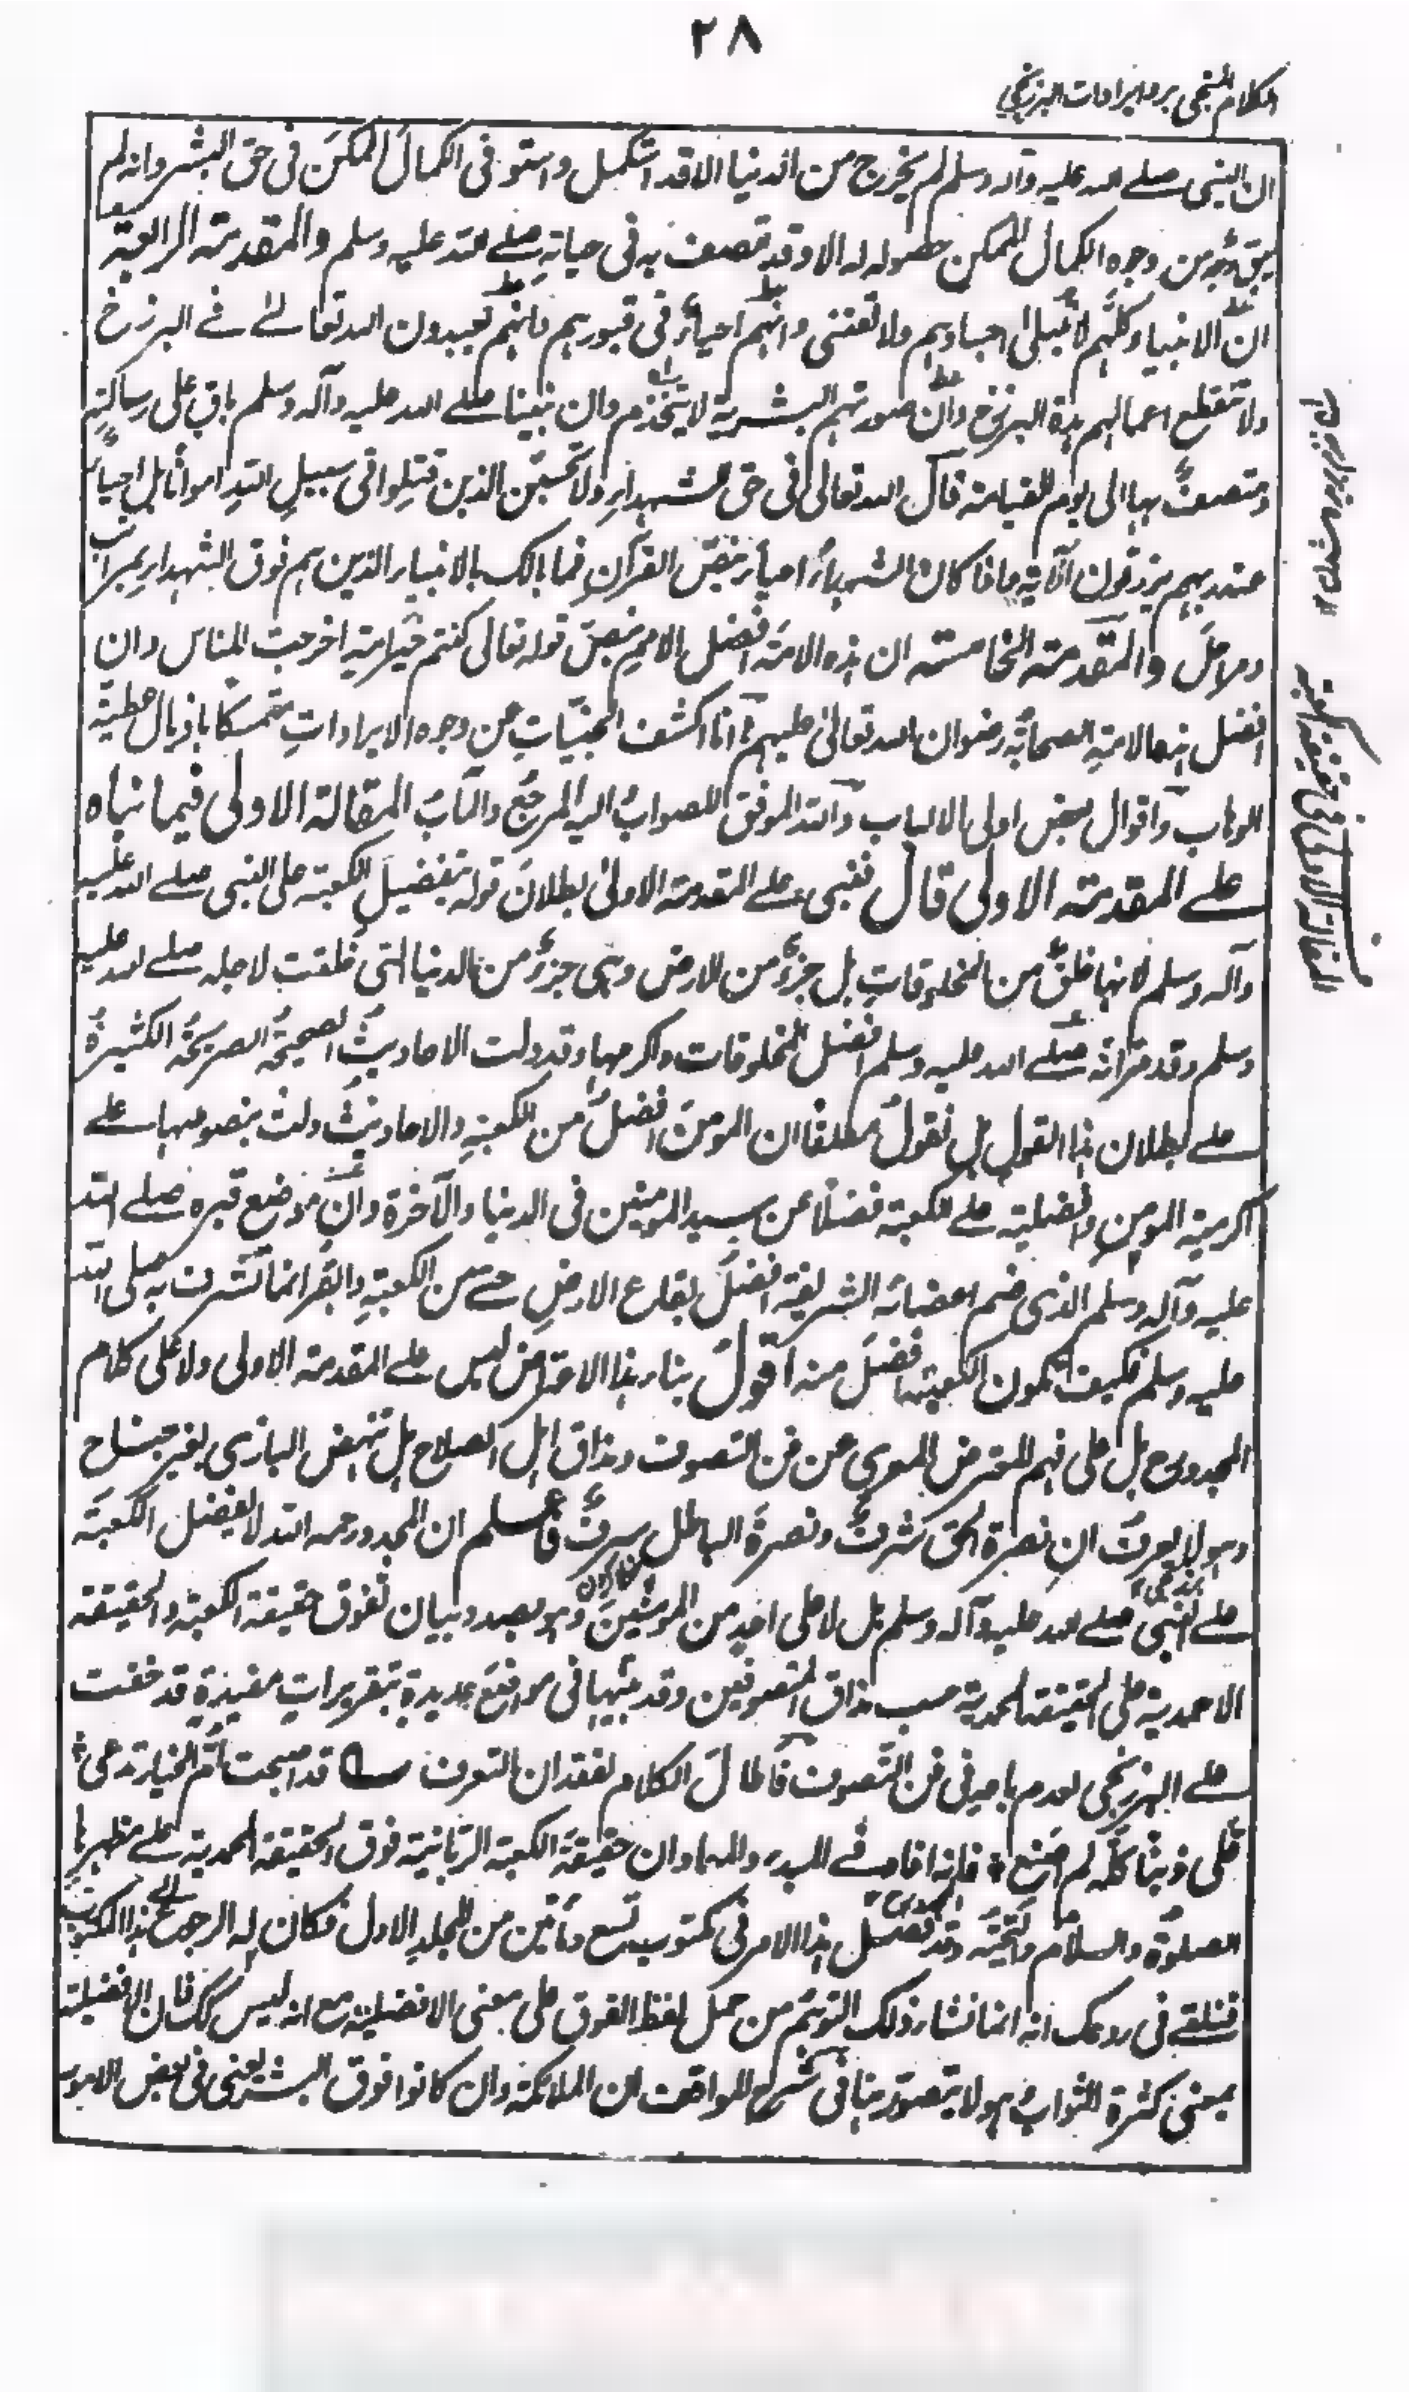 ٢٨
الكلام المنجى برد ايرادات البرزنجى
ان النبى صلے الله عليه وآله وسلم لم يخرج من الدنيا الا قد استكمل واستوفى الكمال الممكن فى حق البشر وانه لم
يبق وجه من وجوه الكمال الممكن حصوله له الا وقد تصف به فى حياته صلے الله عليه وسلم والمقدمة الرابعة
ان الانبياء كلهم لا تبلى اجسادهم ولا تفنى وانهم احياء فى قبورهم وانهم يعبدون الله تعالىٰ فے البرزخ
ولا تنقطع اعمالهم مدة البرزخ وان صورتهم البشرية لا تنخذم وان نبينا صلے الله عليه وآله وسلم باق على رسالته
ومتصف بها الى يوم القيامة قال الله تعالى فى حق الشهداء ولا تحسبن الذين قتلوا فى سبيل الله امواتا بل احياء
عند ربهم يرزقون الآية فاذا كان الشهداء احياء بنص القرآن فما بالك بالانبياء الذين هم فوق الشهداء بمراتب
ومراحل والمقدمة الخامسة ان هذه الامة افضل الامم بنص قوله تعالى كنتم خير امة اخرجت للناس وان
افضل هذه الامة الصحابة رضوان الله تعالىٰ عليهم انا اكشف الجنيات عن وجوه الايرادات متمسكا باذيال عطية
الوهاب واقوال بعض اولى الالباب والله الموفق للصواب اليه المرجع والمآب المقالة الاولى فيما بناه
علے المقدمة الاولى قال فنبنى علے المقدمة الاولىٰ بطلان قوله بتفضيل الكعبة على النبى صلے الله عليه
وآله وسلم لانها خلق من المخلوقات بل جزء من الارض وهى جزء من الدنيا التى خلقت لاجله صلے الله عليه
وسلم وقد مر انه صلے الله عليه وسلم افضل المخلوقات واكرمها وقد دلت الاحاديث الصحيحة الصريحة الكثيرة
علے بطلان هذا القول بل نقول مطلقا ان المومن افضل من الكعبة والاحاديث دلت بنصوصها علے
اكرمية المومن وافضليته علے الكعبة فضلا عن سيد المومنين فى الدنيا والآخرة وان موضع قبره صلے الله
عليه وآله وسلم الذى ضم اعضائه الشريفة افضل بقاع الارض حتے من الكعبة والقبر انما تشرف به صلى الله
عليه وسلم فكيف تكون الكعبة افضل منه اقول بناء هذا الاعتراض ليس علے المقدمة الاولى ولا على كلام
المجدد بل على فهم المعترض المعرى عن فن التصوف ومذاق اهل الصلاح بل تنهض البازى بغير جناح
وهو لا يعرف ان نصرة الحق شرف ونصرة الباطل سرف فاعلم ان المجدد رحمه الله لا يفضل الكعبة
علے النبى صلے الله عليه وآله وسلم بل لا على احد من المومنين وهو بصدد بيان تفوق حقيقة الكعبة والحقيقة
الاحمدية على الحقيقة المحمدية حسب مذاق المتصوفين وقد بينها فى مواقع عديدة بتقريرات مفيدة قد خفت
علے البرزنجى لعدم باعه فى فن التصوف فاطال الكلام لفقدان التعرف ؎ قد اصبحت ام الخيار تدعى
على ذنبا كله لم اصنع ٭ فانه افاد فے المبدء والمعاد ان حقيقة الكعبة الربانية فوق الحقيقة المحمدية علے مظهرها
الصلوة والسلام والتحية وقد فصل هذا الامر فى مكتوب تسع ومأتين من المجلد الاول فكان له الرجوع الے هذا المكتوب
فنلقے فى روعك انه انما نشاء ذلك التوهم من حمل لفظ الفوق على معنى الافضلية مع انه ليس كك فان الافضلية
بمعنى كثرة الثواب وهو لا يتصور هنا فى شرح المواقف ان الملائكة وان كانوا فوق البشر يعنى فى بعض الامور